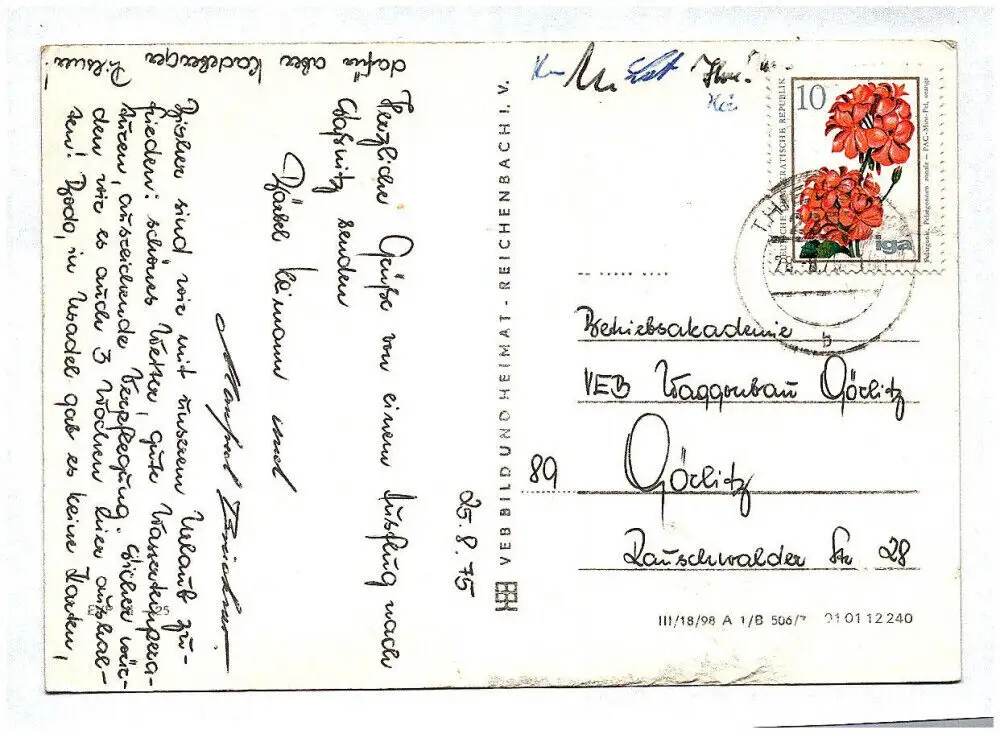 25.8.75
Herzliche Grüße von einem Ausflug nach
Saßnitz senden
Bärbel Reimann und
Manfred
Bisher sind wir mit unserem Urlaub zu-
frieden: schönes Wetter, gute Wassertempera-
turen, ausreichende Verpflegung. Sicher wür-
den wir es auch 3 Wochen hier aushal-
ten! Bodo, in Usadel gab es keine Karten,
dafür aber Radeberger
Pilsner!
VEB BILD UND HEIMAT - REICHENBACH I. V.
10
DEUTSCHE DEMOKRATISCHE REPUBLIK
Pelargonie, Pelargonium zonale – PAC-Mini-Pol, orange
iga
b
Betriebsakademie
VEB Waggonbau Görlitz
89 Görlitz
Rauschwalder Str 28
III/18/98 A 1/B 506/7 01 01 12 240